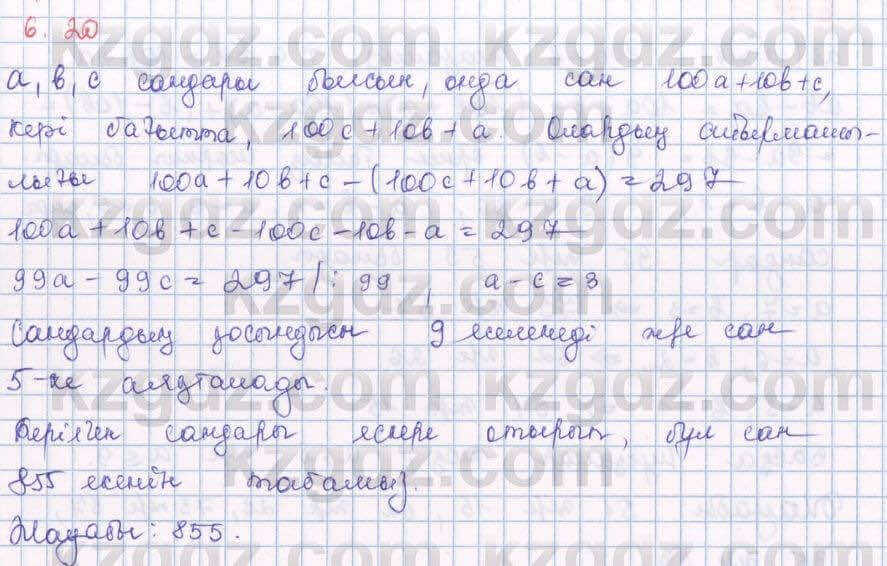 6. 20
а, в, с сандары болсын, онда сан 100а+10в+с,
кері бағытта, 100с+10в+а. Олардың айырмашы-
лығы 100а+10в+с-(100с+10в+а)=297
100а+10в+с-100с-10в-а=297
99а-99с=297/:99, а-с=3
Сандардың қосындысы 9 еселенеді және сан
5-ке аяқталады.
Берілген сандары ескере отырып, бұл сан
855 екенін табамыз.
Жауабы: 855.